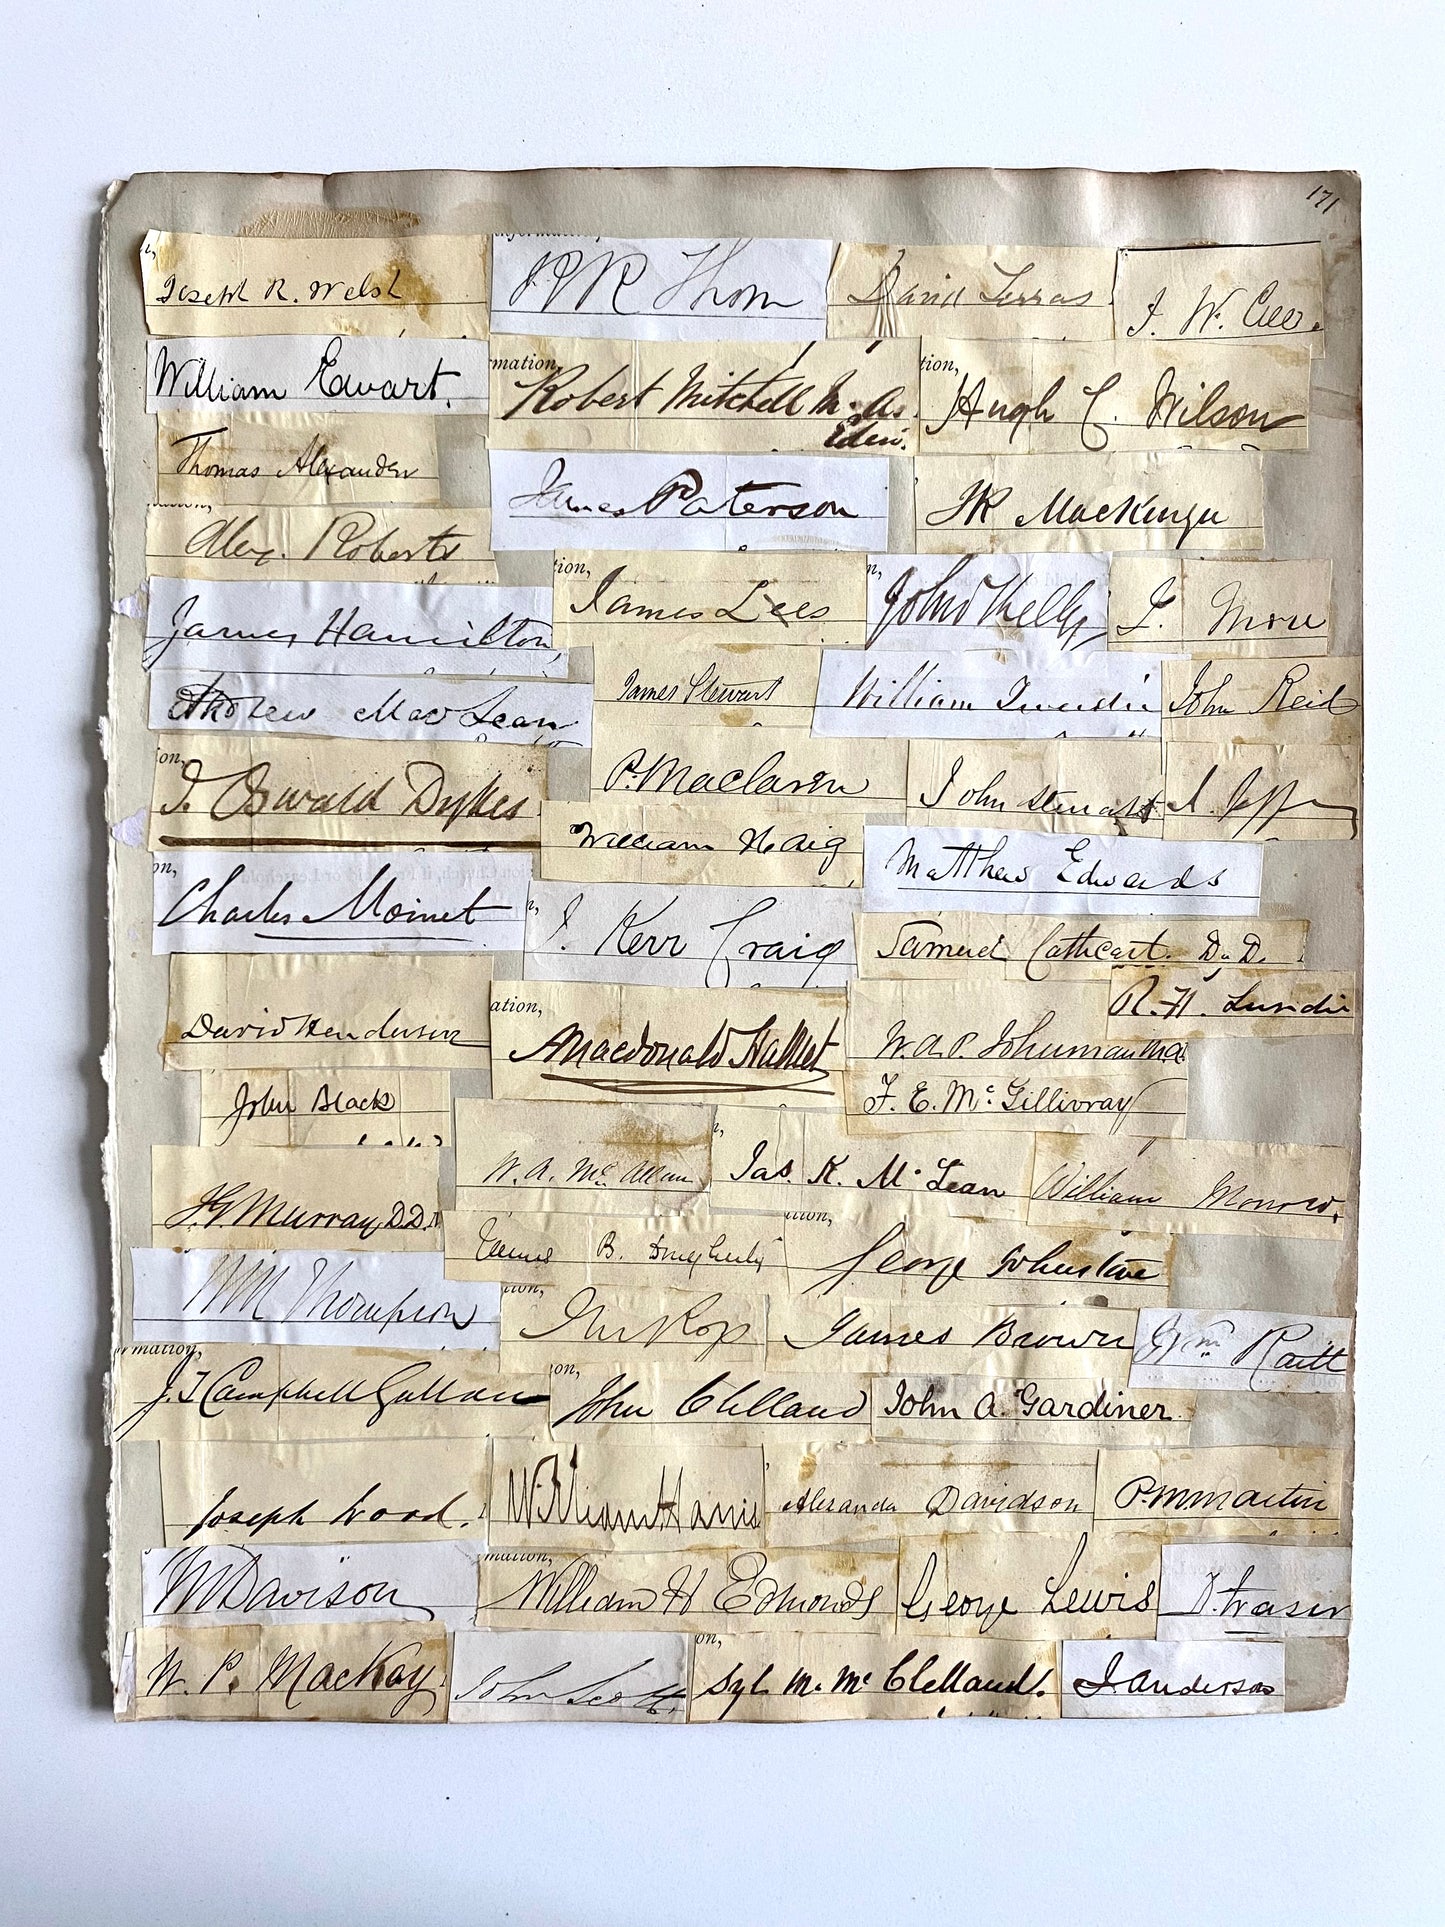 171
Joseph R. Welsh
J P R Thom
David Terras
William Ewart.
rmation,
Robert Mitchell M.A.
Edin.
tion,
Hugh C. Wilson
Thomas Alexander
James Paterson
JR MacKenzie
Alex. Roberts
tion,
James Lees
n,
John Kelly
James Hamilton,
James Stewart
William Tweedie
John Reid
Andrew MacLean
on,
J. Oswald Dykes
P. Maclaren
John Stewart
William Haig
Matthew Edwards
on,
Charles Moinet
J. Kerr Craig
Samuel Cathcart. D.D.
R. H. Lundie
David Henderson
ation,
A Macdonald Hallet
W.A.P. Johnman M.A.
F. E. McGillivray
John Black
W. A. McAllan
Jas. K. McLean
William Morrow.
J G Murray D.D.
George Johnstone
WM Thompson
tion,
James Brown
Wm Raitt
rmation,
J. T Campbell Gullan
on,
John Clelland
John A. Gardiner
Joseph Wood.
William Harris
Alexander Davidson
P. M Martin
W Davison
mation,
William H Edmonds
George Lewis
D. Fraser
W. P. MacKay
John Scott
on,
Syl. M. McClelland.
J. Anderson